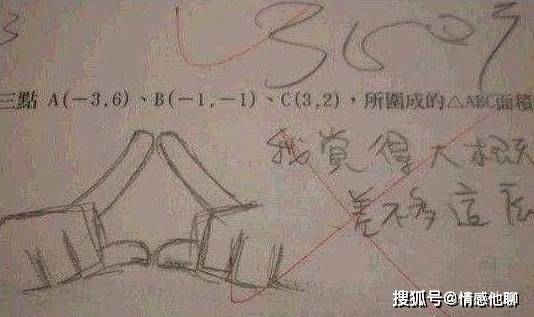 3
三點 A(-3,6)、B(-1,-1)、C(3,2),所圍成的△ABC面積
我覺得大概
差不多這
搜狐号@情感他聊